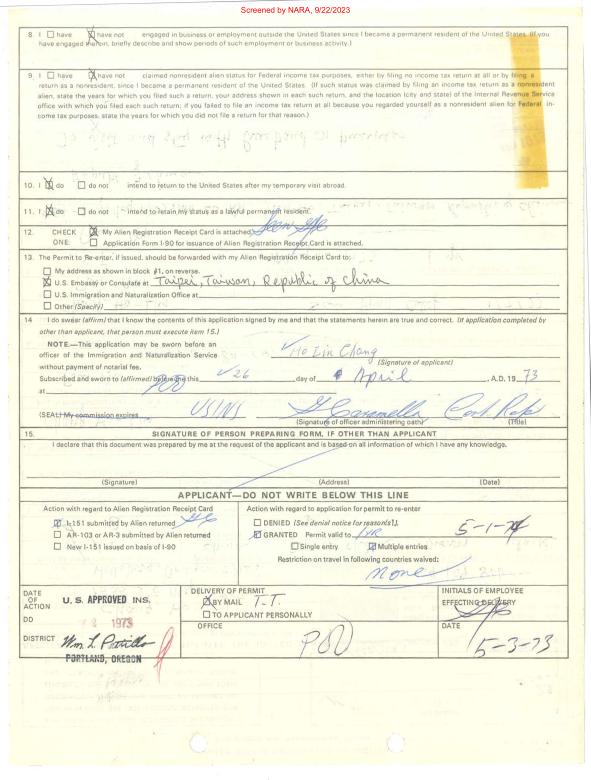 Screened by NARA, 9/22/2023
8. I ☐ have ☒ have not engaged in business or employment outside the United States since I became a permanent resident of the United States. (If you
have engaged therein, briefly describe and show periods of such employment or business activity.)
9. I ☐ have ☒ have not claimed nonresident alien status for Federal income tax purposes, either by filing no income tax return at all or by filing a
return as a nonresident, since I became a permanent resident of the United States. (If such status was claimed by filing an income tax return as a nonresident
alien, state the years for which you filed such a return, your address shown in each such return, and the location (city and state) of the Internal Revenue Service
office with which you filed each such return; if you failed to file an income tax return at all because you regarded yourself as a nonresident alien for Federal in-
come tax purposes, state the years for which you did not file a return for that reason.)
10. I ☒ do ☐ do not intend to return to the United States after my temporary visit abroad.
11. I ☒ do ☐ do not intend to retain my status as a lawful permanent resident.
12. CHECK ☒ My Alien Registration Receipt Card is attached. Seen
ONE: ☐ Application Form I-90 for issuance of Alien Registration Receipt Card is attached.
13. The Permit to Re-enter, if issued, should be forwarded with my Alien Registration Receipt Card to:
☐ My address as shown in block #1, on reverse.
☒ U.S. Embassy or Consulate at Taipei, Taiwan, Republic of China
☐ U.S. Immigration and Naturalization Office at
☐ Other (Specify)
14 I do swear (affirm) that I know the contents of this application signed by me and that the statements herein are true and correct. (If application completed by
other than applicant, that person must execute item 15.)
NOTE.—This application may be sworn before an
officer of the Immigration and Naturalization Service
without payment of notarial fee.
Ho Lin Chang
(Signature of applicant)
Subscribed and sworn to (affirmed) before me this 26 day of April, A.D. 19 73
at POO
(SEAL) My commission expires USINS G Caramella Cont Rep
(Signature of officer administering oath) (Title)
15. SIGNATURE OF PERSON PREPARING FORM, IF OTHER THAN APPLICANT
I declare that this document was prepared by me at the request of the applicant and is based on all information of which I have any knowledge.
(Signature) (Address) (Date)
APPLICANT—DO NOT WRITE BELOW THIS LINE
Action with regard to Alien Registration Receipt Card
☑ I-151 submitted by Alien returned
☐ AR-103 or AR-3 submitted by Alien returned
☐ New I-151 issued on basis of I-90
Action with regard to application for permit to re-enter
☐ DENIED (See denial notice for reason(s).)
☑ GRANTED Permit valid to 1 YR 5-1-74
☐ Single entry ☑ Multiple entries
Restriction on travel in following countries waived:
None
DATE
OF
ACTION
DD
DISTRICT
U. S. APPROVED INS.
1973
PORTLAND, OREGON
DELIVERY OF PERMIT
☒ BY MAIL T-T.
☐ TO APPLICANT PERSONALLY
OFFICE
POO
INITIALS OF EMPLOYEE
EFFECTING DELIVERY
DATE
5-3-73